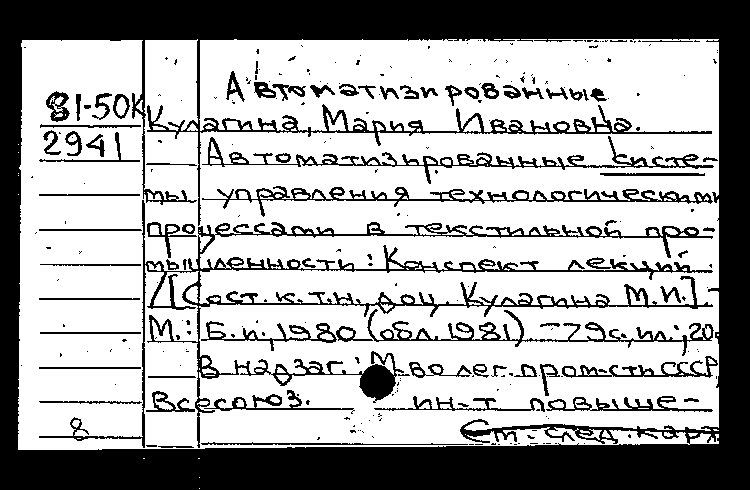 Автоматизированные
81-50К
2941
Кулагина, Мария Ивановна.
Автоматизированные систе-
мы управления технологическими
процессами в текстильной про-
мышленности: Конспект лекций
/[Сост. к.т.н., доц. Кулагина М.И.].-
М.: Б.и., 1980 (обл. 1981) -79с., ил.; 20
В надзаг.: М-во лег. пром-сти СССР,
Всесоюз. ин-т повыше-
8
См. след. карт